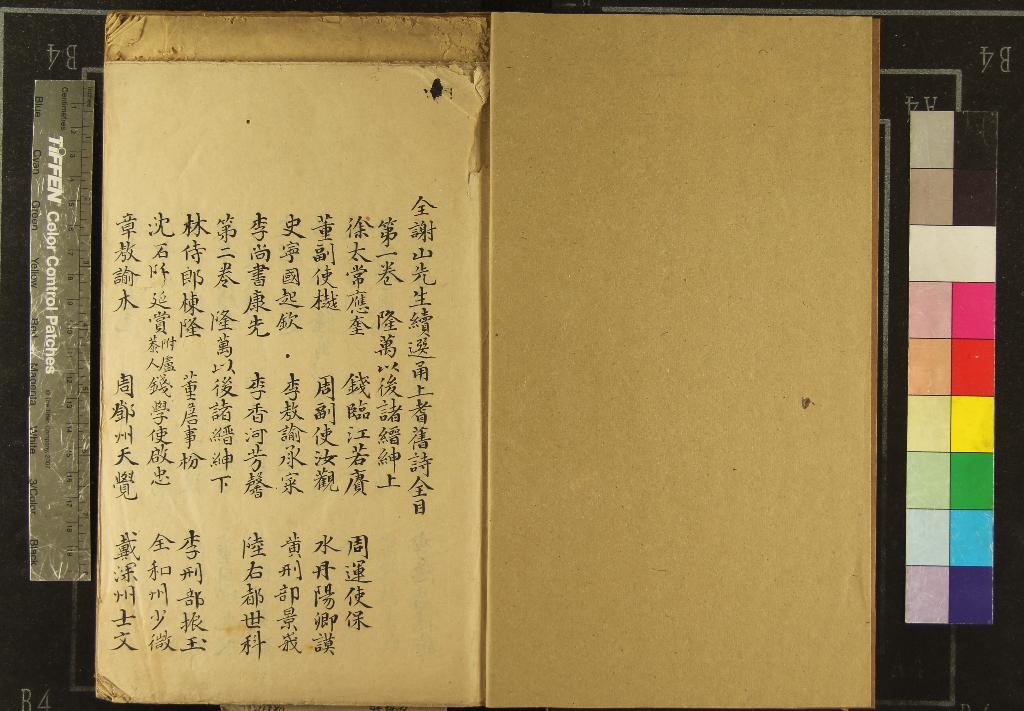 全謝山先生續選甬上耆舊詩全目
第一卷 隆萬以後諸縉紳上
徐太常應奎 錢臨江若賡 周運使保
董副使樾 周副使汝觀 水丹陽卿謨
史寧國起欽 李教諭承寀 黄刑部景莪
李尚書康先 李香河芳馨 陸右都世科
第二卷 隆萬以後諸縉紳下
林侍郎棟隆 董詹事枌 李刑部振玉
沈石阡延賞 附盧泰人 錢學使啟忠 全和州少微
章教諭木 周鄧州天覺 戴深州士文
B4
B4
A4
B4
Centimetres
Inches
TIFFEN Color Control Patches
Blue
Cyan
Green
Yellow
Red
Magenta
White
3/Color
Black